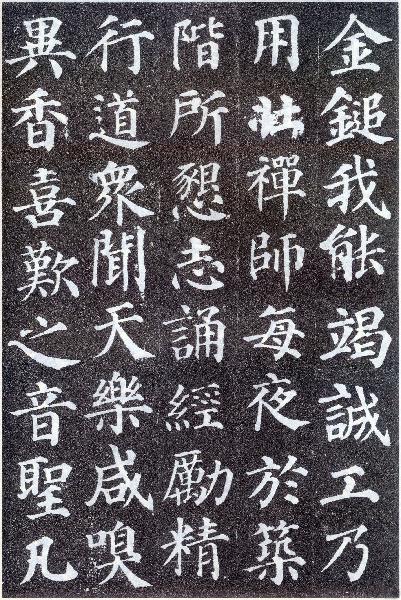 金鎚我能竭誠工乃
用壯禪師每夜於築
階所懇志誦經勵精
行道衆聞天樂咸嗅
異香喜歎之音聖凡